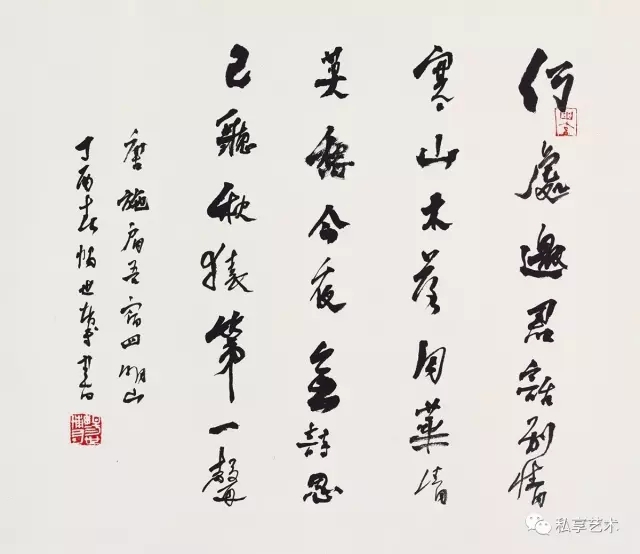 何處邀君話別情
寒山木落月華清
莫愁今夜無詩思
已聽秋猿第一聲
唐施肩吾宿四明山
丁酉春世書
私享艺术